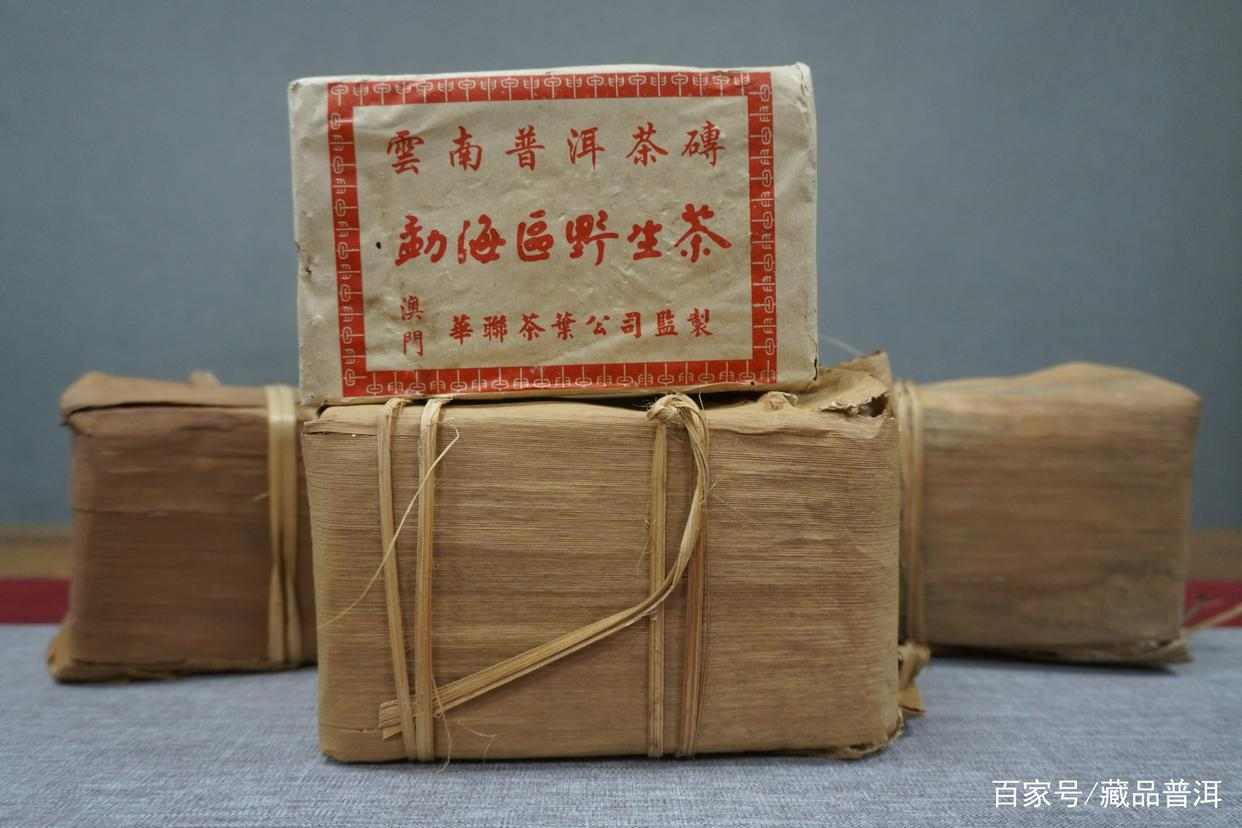 雲南普洱茶磚
勐海區野生茶
澳門 華聯茶葉公司監製
百家号/藏品普洱